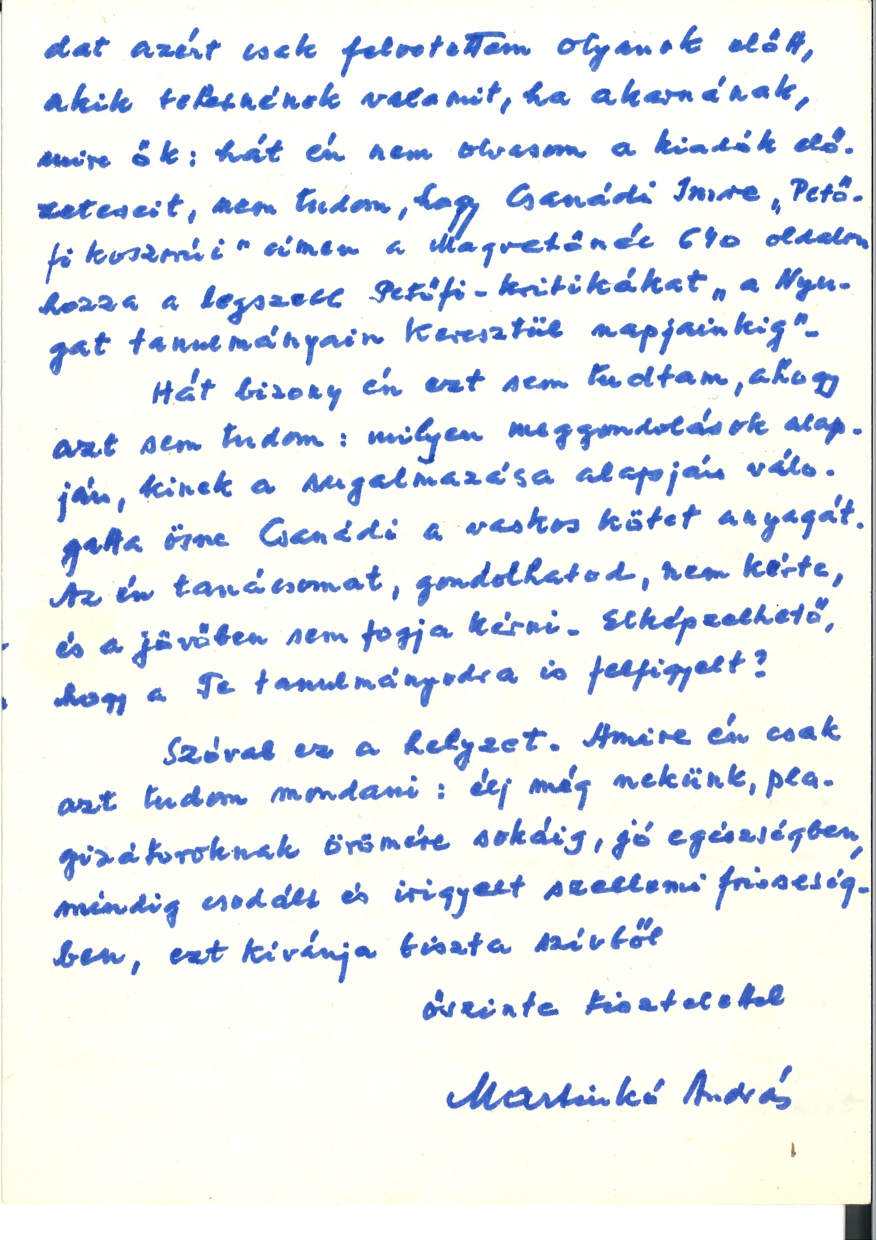 dat azért csak felvetettem olyanok előtt,
akik tehetnének valamit, ha akarnának,
mire ők: hát én nem olvasom a kiadók elő-
zeteseit, nem tudom, hogy Csanádi Imre „Pető-
fi koszorúi" címen a Magvetőnél 640 oldalon
hozza a legszebb Petőfi-kritikákat „a Nyu-
gat tanulmányain keresztül napjainkig"-
Hát bizony én ezt sem tudtam, ahogy
azt sem tudom: milyen meggondolások alap-
ján, kinek a sugalmazása alapján válo-
gatta össze Csanádi a vaskos kötet anyagát.
Az én tanácsomat, gondolhatod, nem kérte,
és a jövőben sem fogja kérni. Elképzelhető,
hogy a Te tanulmányodra is felfigyelt?
Szóval ez a helyzet. Amire én csak
azt tudom mondani: élj még nekünk, pla-
gizátoroknak örömére sokáig, jó egészségben,
mindig csodált és irigyelt szellemi frisseség-
ben, ezt kívánja tiszta szívből
őszinte tisztelettel
Martinkó András